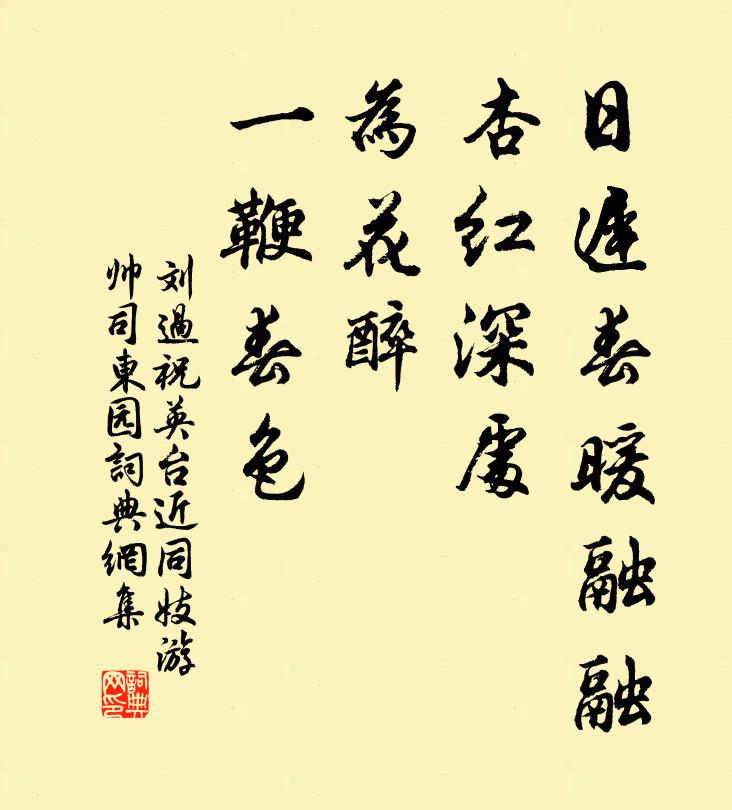 日遲春暖融融
杏红深處
為花醉
一鞭春色
刘過祝英台近同妓游
帅司東园詞典網集
詞典
网印